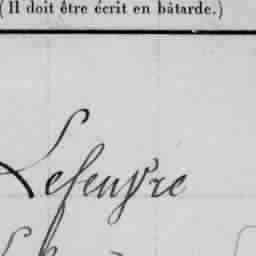 (Il doit être écrit en bâtarde.)
Lefeuvre